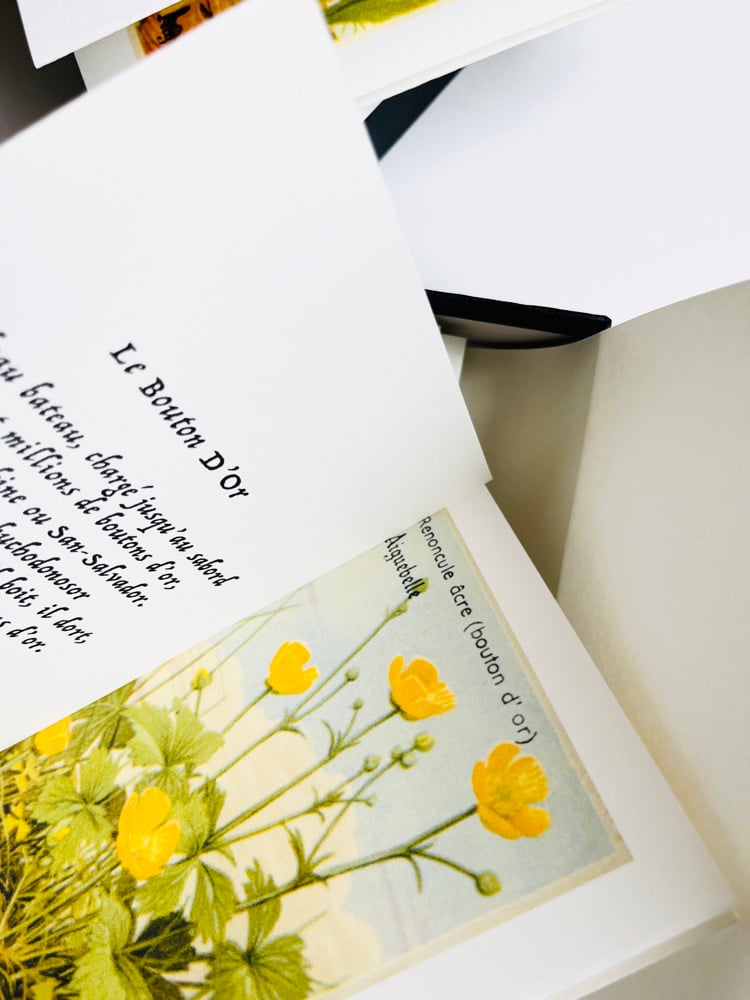 Le Bouton D'Or
au bateau, chargé jusqu'au sabord
millions de boutons d'or,
ou San-Salvador.
boit, il dort,
d'or.
Renoncule âcre (bouton d'or)
Aiguebelle